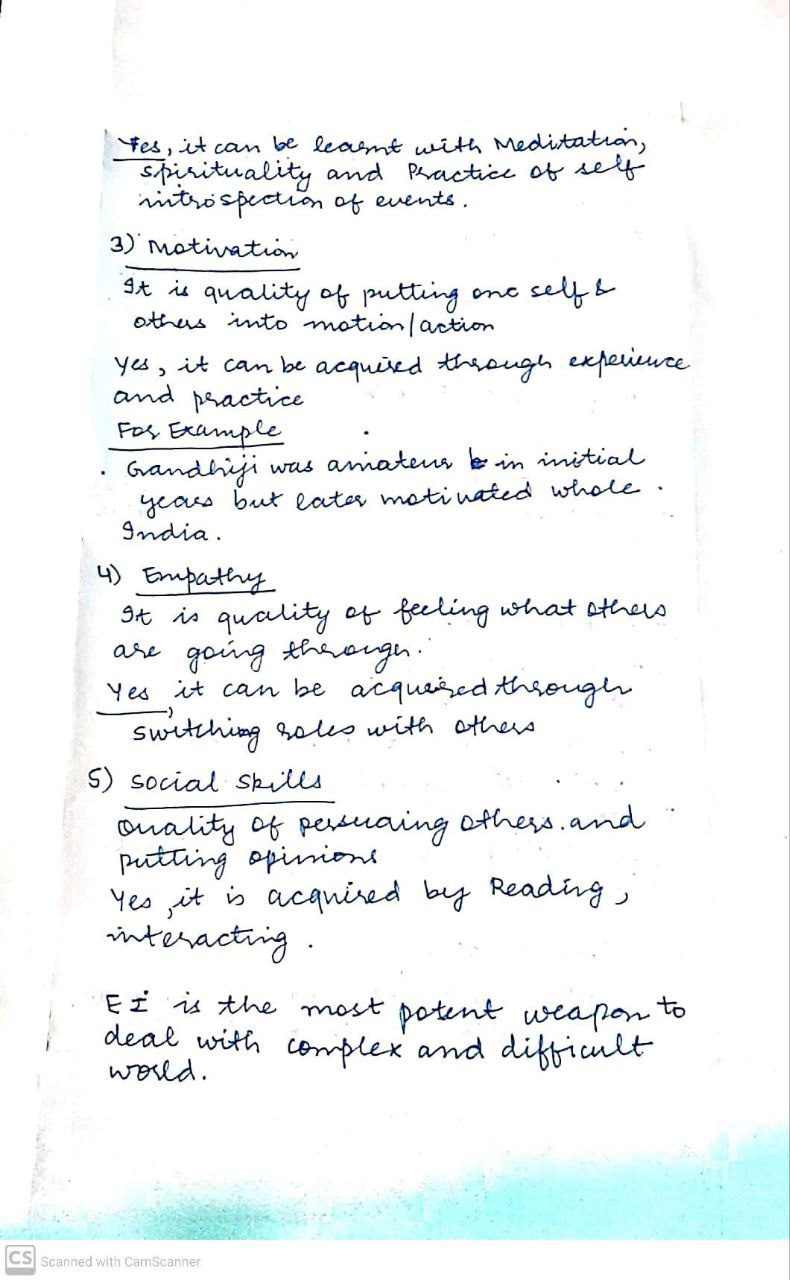 Yes, it can be learnt with Meditation,
spirituality and Practice of self
introspection of events.
3) Motivation
It is quality of putting one self &
others into motion/action
Yes, it can be acquired through experience
and practice
For Example
. Gandhiji was amateur in initial
years but later motivated whole
India.
4) Empathy
It is quality of feeling what others
are going through.
Yes, it can be acquired through
switching roles with others
5) Social Skills
Quality of persuaing others. and
putting opinions
Yes, it is acquired by Reading,
interacting.
EI is the most potent weapon to
deal with complex and difficult
world.
CS Scanned with CamScanner